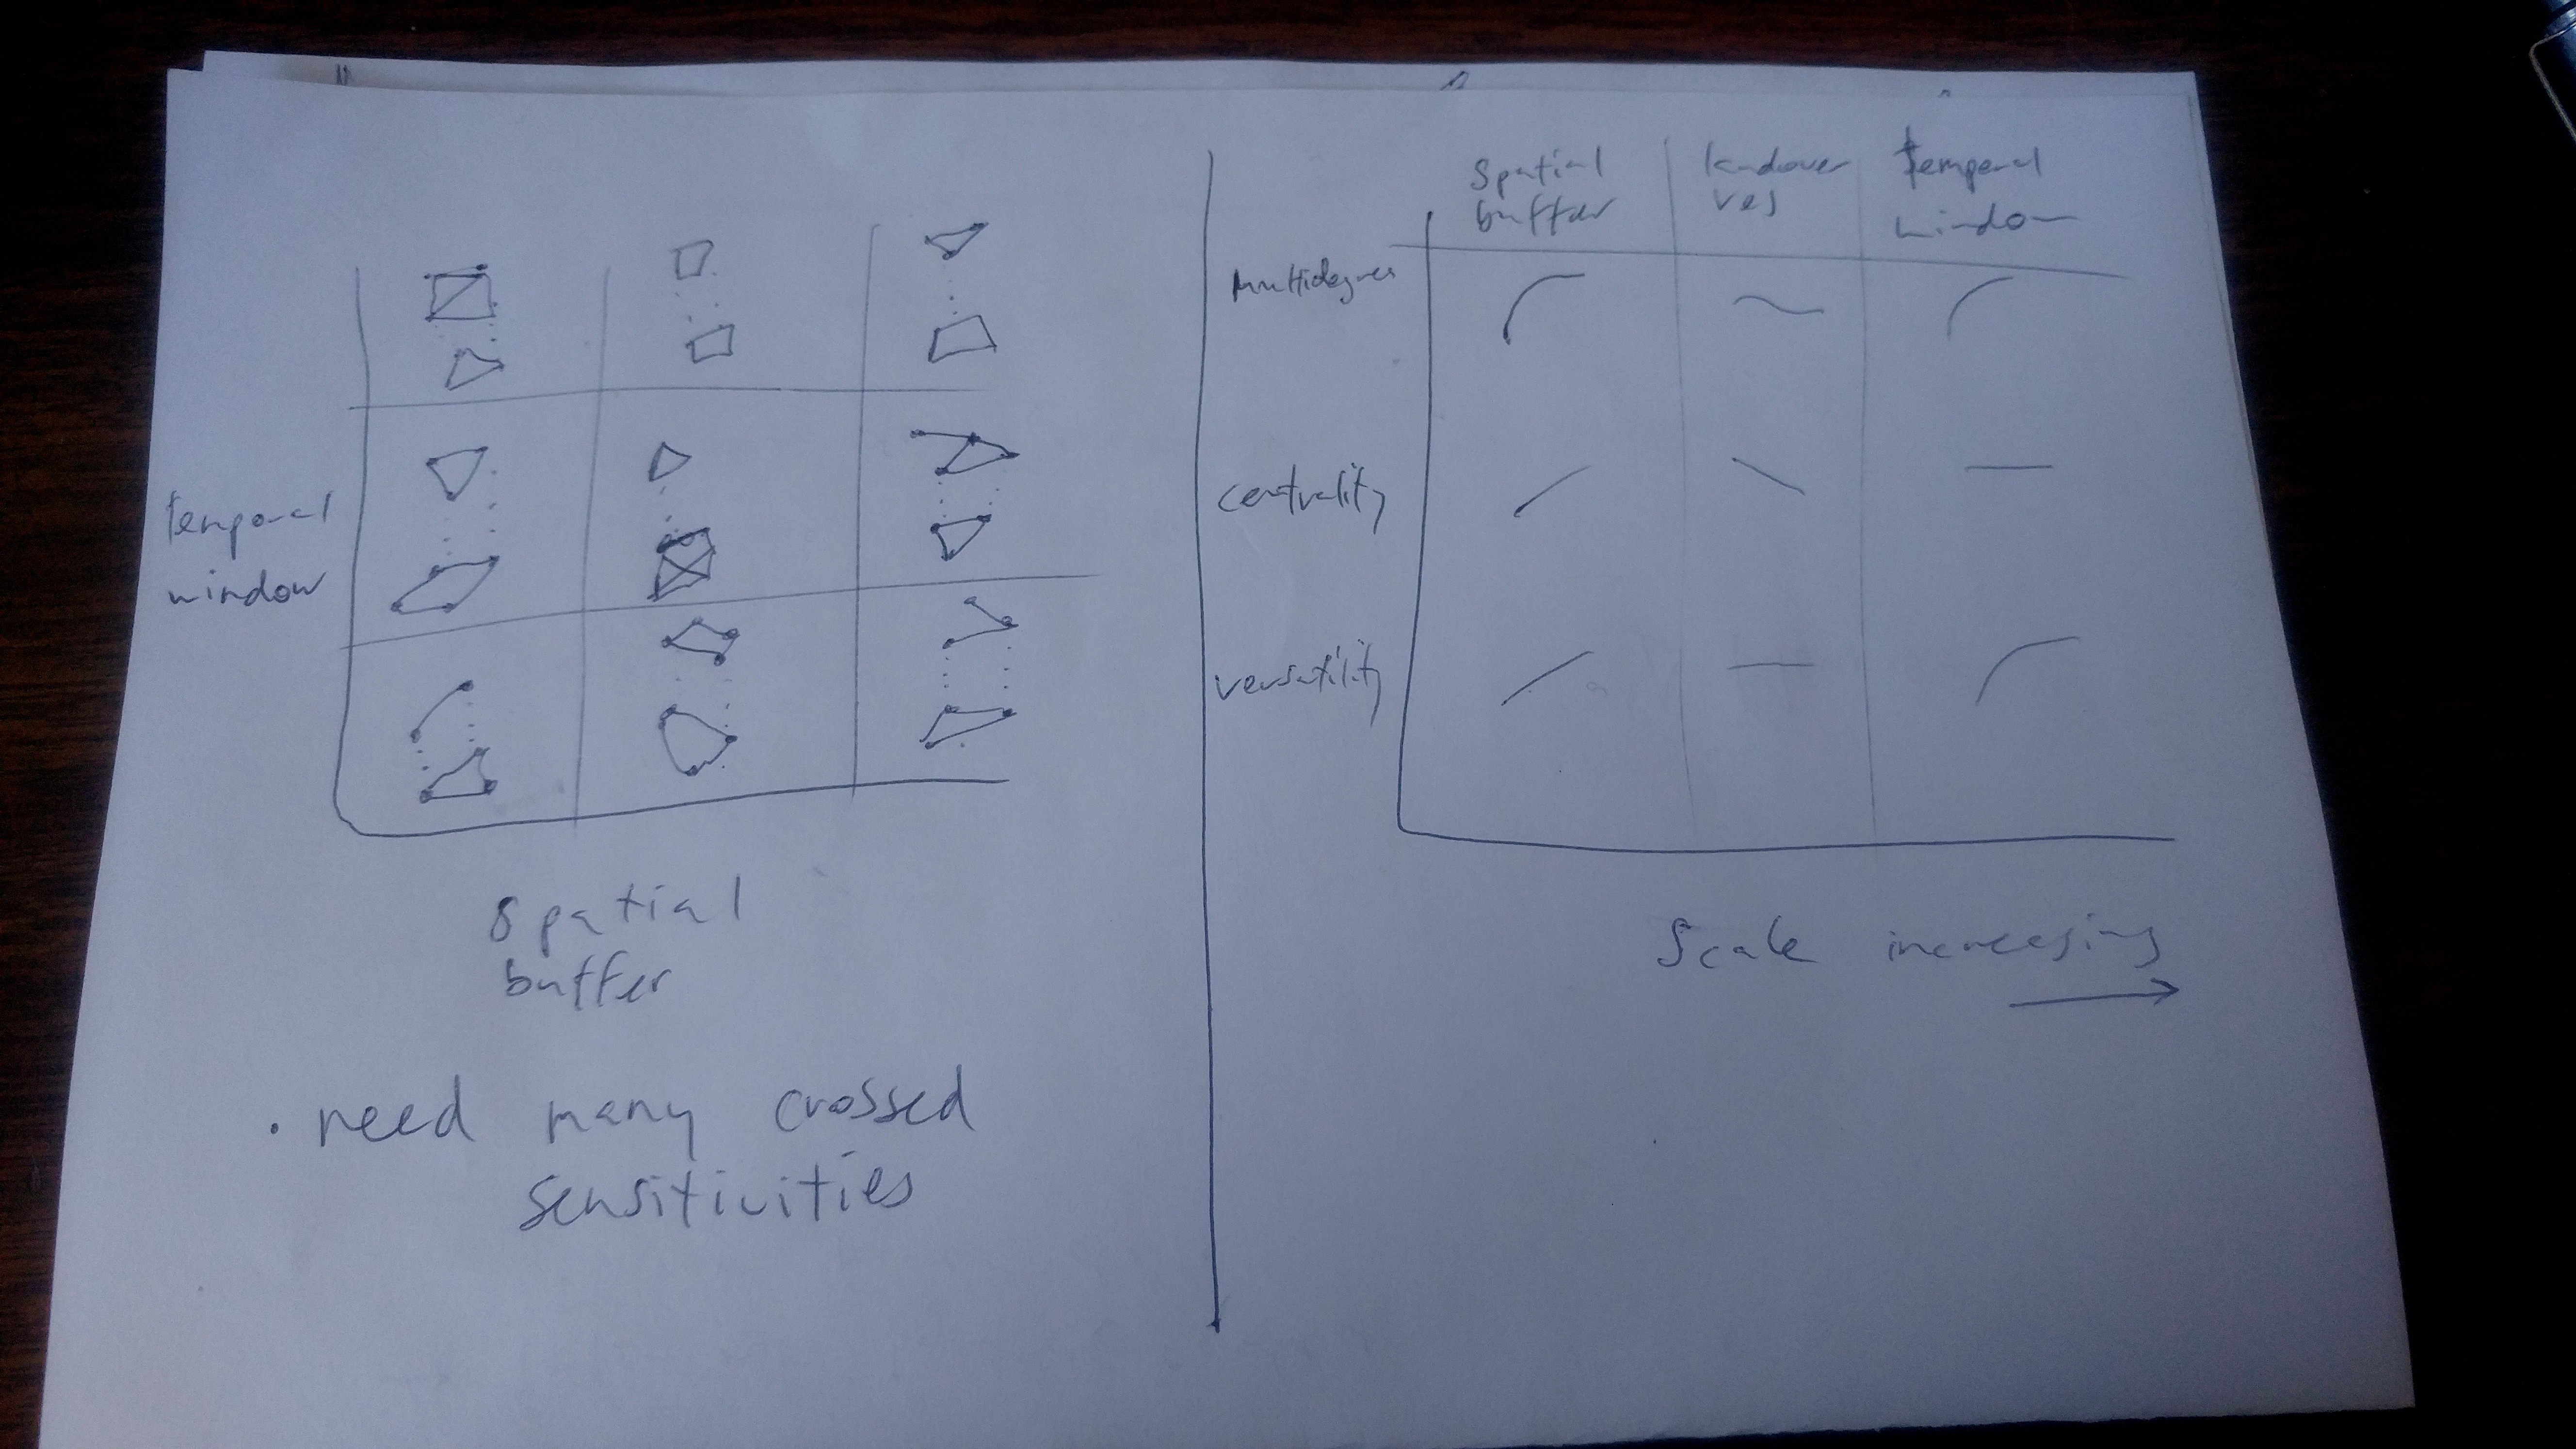 temporal
window
Spatial
buffer
· need many crossed
sensitivities
Spatial
buffer
landcover
res
temporal
window
Multidegree
centrality
versatility
Scale increasing